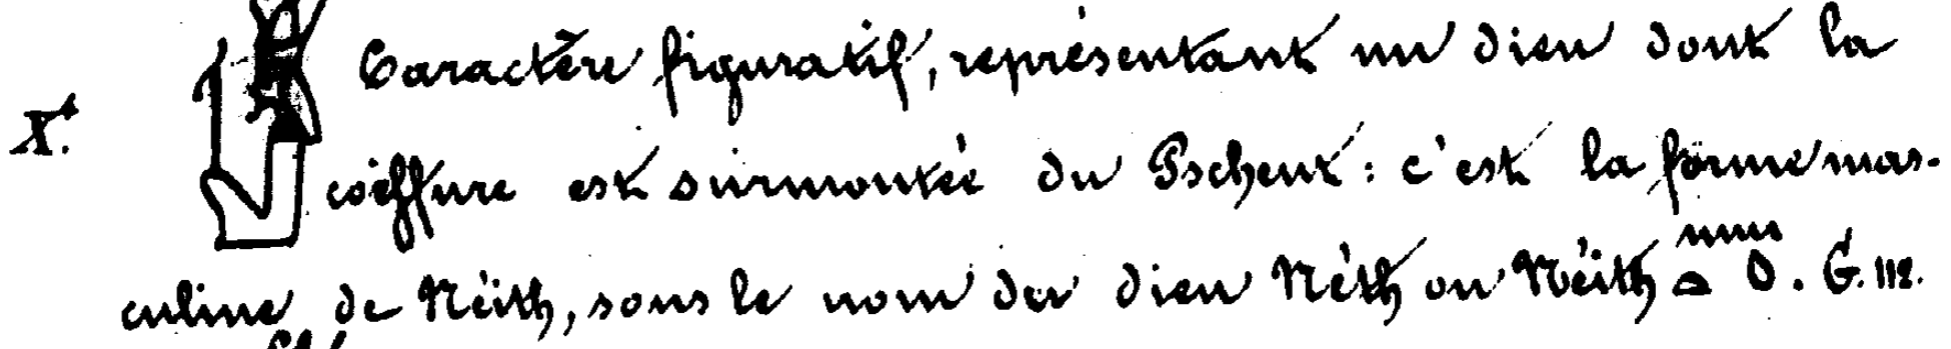 X. Caractère figuratif, représentant un dieu dont la
coiffure est surmontée du Pschent : c'est la forme mas-
culine de Néith, sous le nom du dieu Néth ou Néith . G. 112.